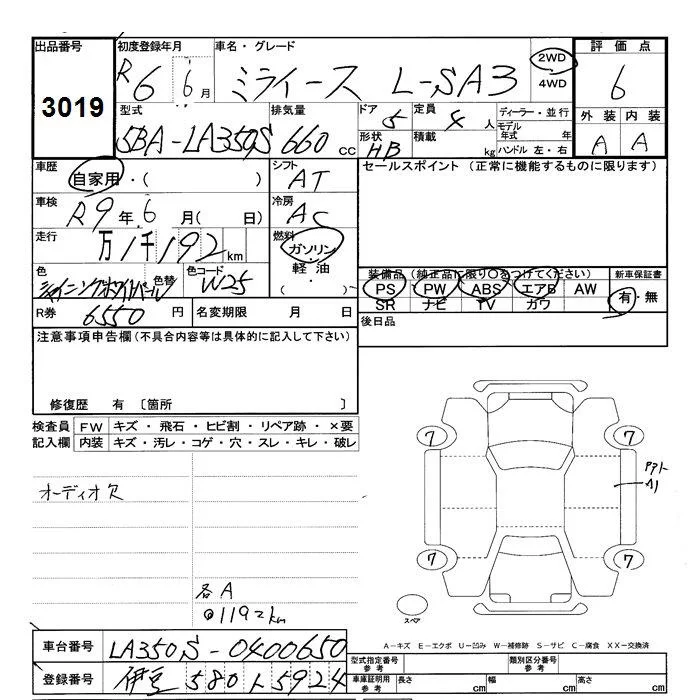 出品番号 初度登録年月 車名・グレード 評価点
3019 R6年6月 ミライース L-SA3 2WD 4WD 6
型式 排気量 ドア 定員 ディーラー・並行 外装 内装
5BA-LA350S 660 cc 5 4人 モデル年式 年 A A
形状 HB 積載 kg ハンドル 左・右
車歴 シフト セールスポイント (正常に機能するものに限ります)
自家用・( ) AT
車検 冷房
R9年6月( 日) AC
走行 燃料
万1千192km ガソリン・軽油・( )
色 色替 色コード 装備品 (純正品に限り○をつけてください) 新車保証書
シャイニングホワイトパール W25 PS PW ABS エアB AW 有・無
SR ナビ TV カワ
R券 6550円 名変期限 月 日 後日品
注意事項申告欄 (不具合内容等は具体的に記入して下さい)
修復歴 有 〔箇所 〕
検査員記入欄 FW キズ・飛石・ヒビ割・リペア跡・×要
内装 キズ・汚レ・コゲ・穴・スレ・キレ・破レ
オーディオ欠
7 7
アト A1
7 7
各A
@1192km
スペア
A-キズ E-エクボ U-凹み W-補修跡 S-サビ C-腐食 XX-交換済
車台番号 LA350S-0400650
登録番号 伊豆 580 ト 5924
型式指定番号 参考 類別区分番号 参考
車庫証明用 参考 長さ cm 幅 cm 高さ cm